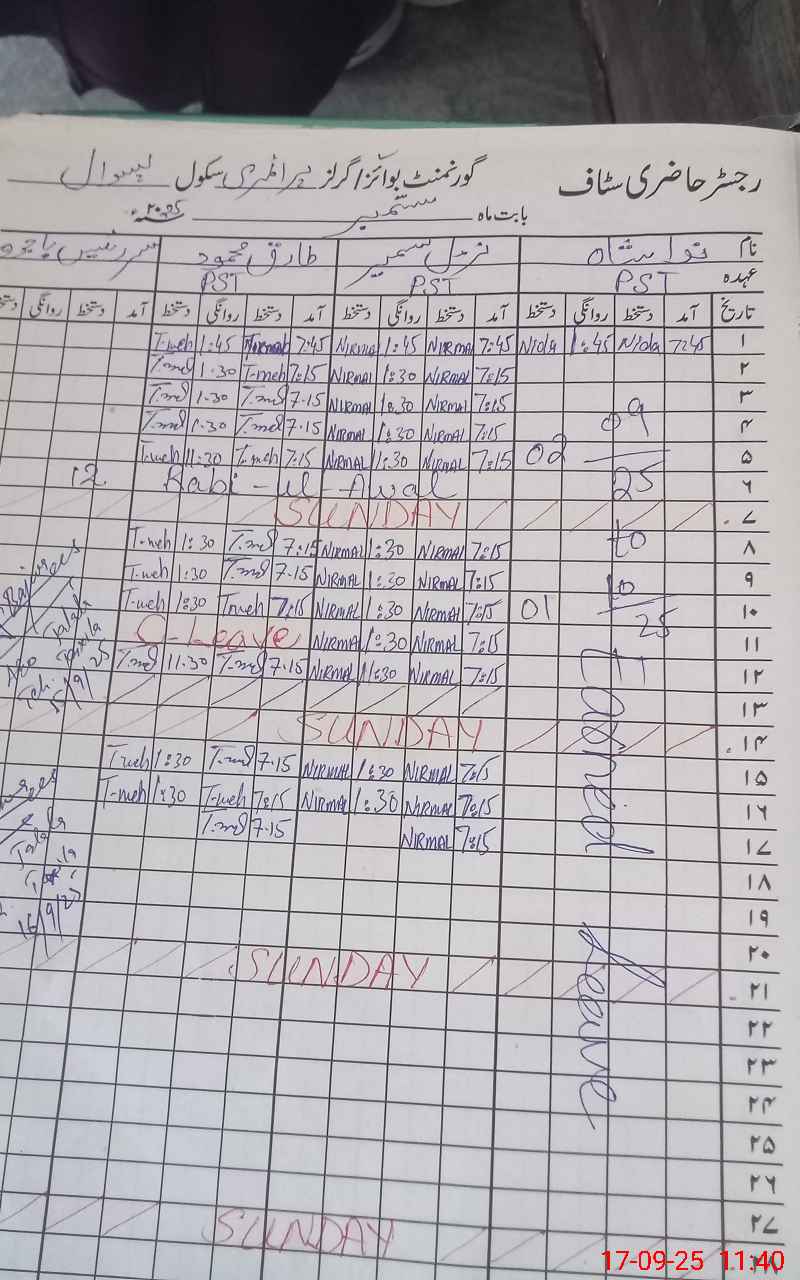 رجسٹر حاضری سٹاف گورنمنٹ بوائز/گرلز پرائمری سکول
بابت ماہ ستمبر ۲۰۲۵ء
نام نداشاہ نرمل سمیر طارق محمود
عہدہ PST PST PST
تاریخ آمد دستخط روانگی دستخط آمد دستخط روانگی دستخط آمد دستخط روانگی دستخط آمد دستخط روانگی دستخط
۱ 7:45 Nida 1:45 Nida 7:45 NIRMAL 1:45 NIRMAL 7:45 1:45 T-meh
۲ 7:15 NIRMAL 1:30 NIRMAL 7:15 T-meh 1:30 T.med
۳ 7:15 NIRMAL 1:30 NIRMAL 7.15 T.med 1.30 T.med
۴ 7:15 NIRMAL 1:30 NIRMAL 7.15 T.med 1.30 T.med
۵ 7:15 NIRMAL 11:30 NIRMAL 7:15 T-meh 11:30 T-meh
۶ 12 Rabi-ul-Awal
۷ SUNDAY
۸ 7:15 NIRMAL 1:30 NIRMAL 7:15 T.med 1:30 T-meh
۹ 7:15 NIRMAL 1:30 NIRMAL 7.15 T.med 1:30 T-meh
۱۰ 7:15 NIRMAL 1:30 NIRMAL 7:15 T-meh 1:30 T-meh
۱۱ 7:15 NIRMAL 1:30 NIRMAL C-Leave
۱۲ 7:15 NIRMAL 11:30 NIRMAL 7.15 T.med 11.30 T.med
۱۳
۱۴ SUNDAY
۱۵ 7:15 NIRMAL 1:30 NIRMAL 7.15 T.med 1:30 T-meh
۱۶ 7:15 NIRMAL 1:30 NIRMAL 7:15 T-meh 1:30 T-meh
۱۷ 7:15 NIRMAL 7.15 T.med
۱۸
۱۹
۲۰
۲۱ SUNDAY
۲۲
۲۳
۲۴
۲۵
۲۶
۲۷
۲۸ SUNDAY
02
09
25
to
10
25
01
Earned
Leave
16/9/25
17-09-25 11:40